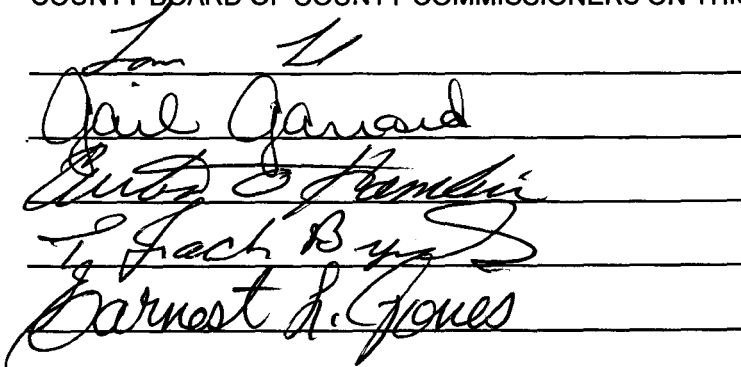 COUNTY BOARD OF COUNTY COMMISSIONERS ON THIS
Tom
Gail Garrard
Hamlin
T. Zach
Earnest L. Jones